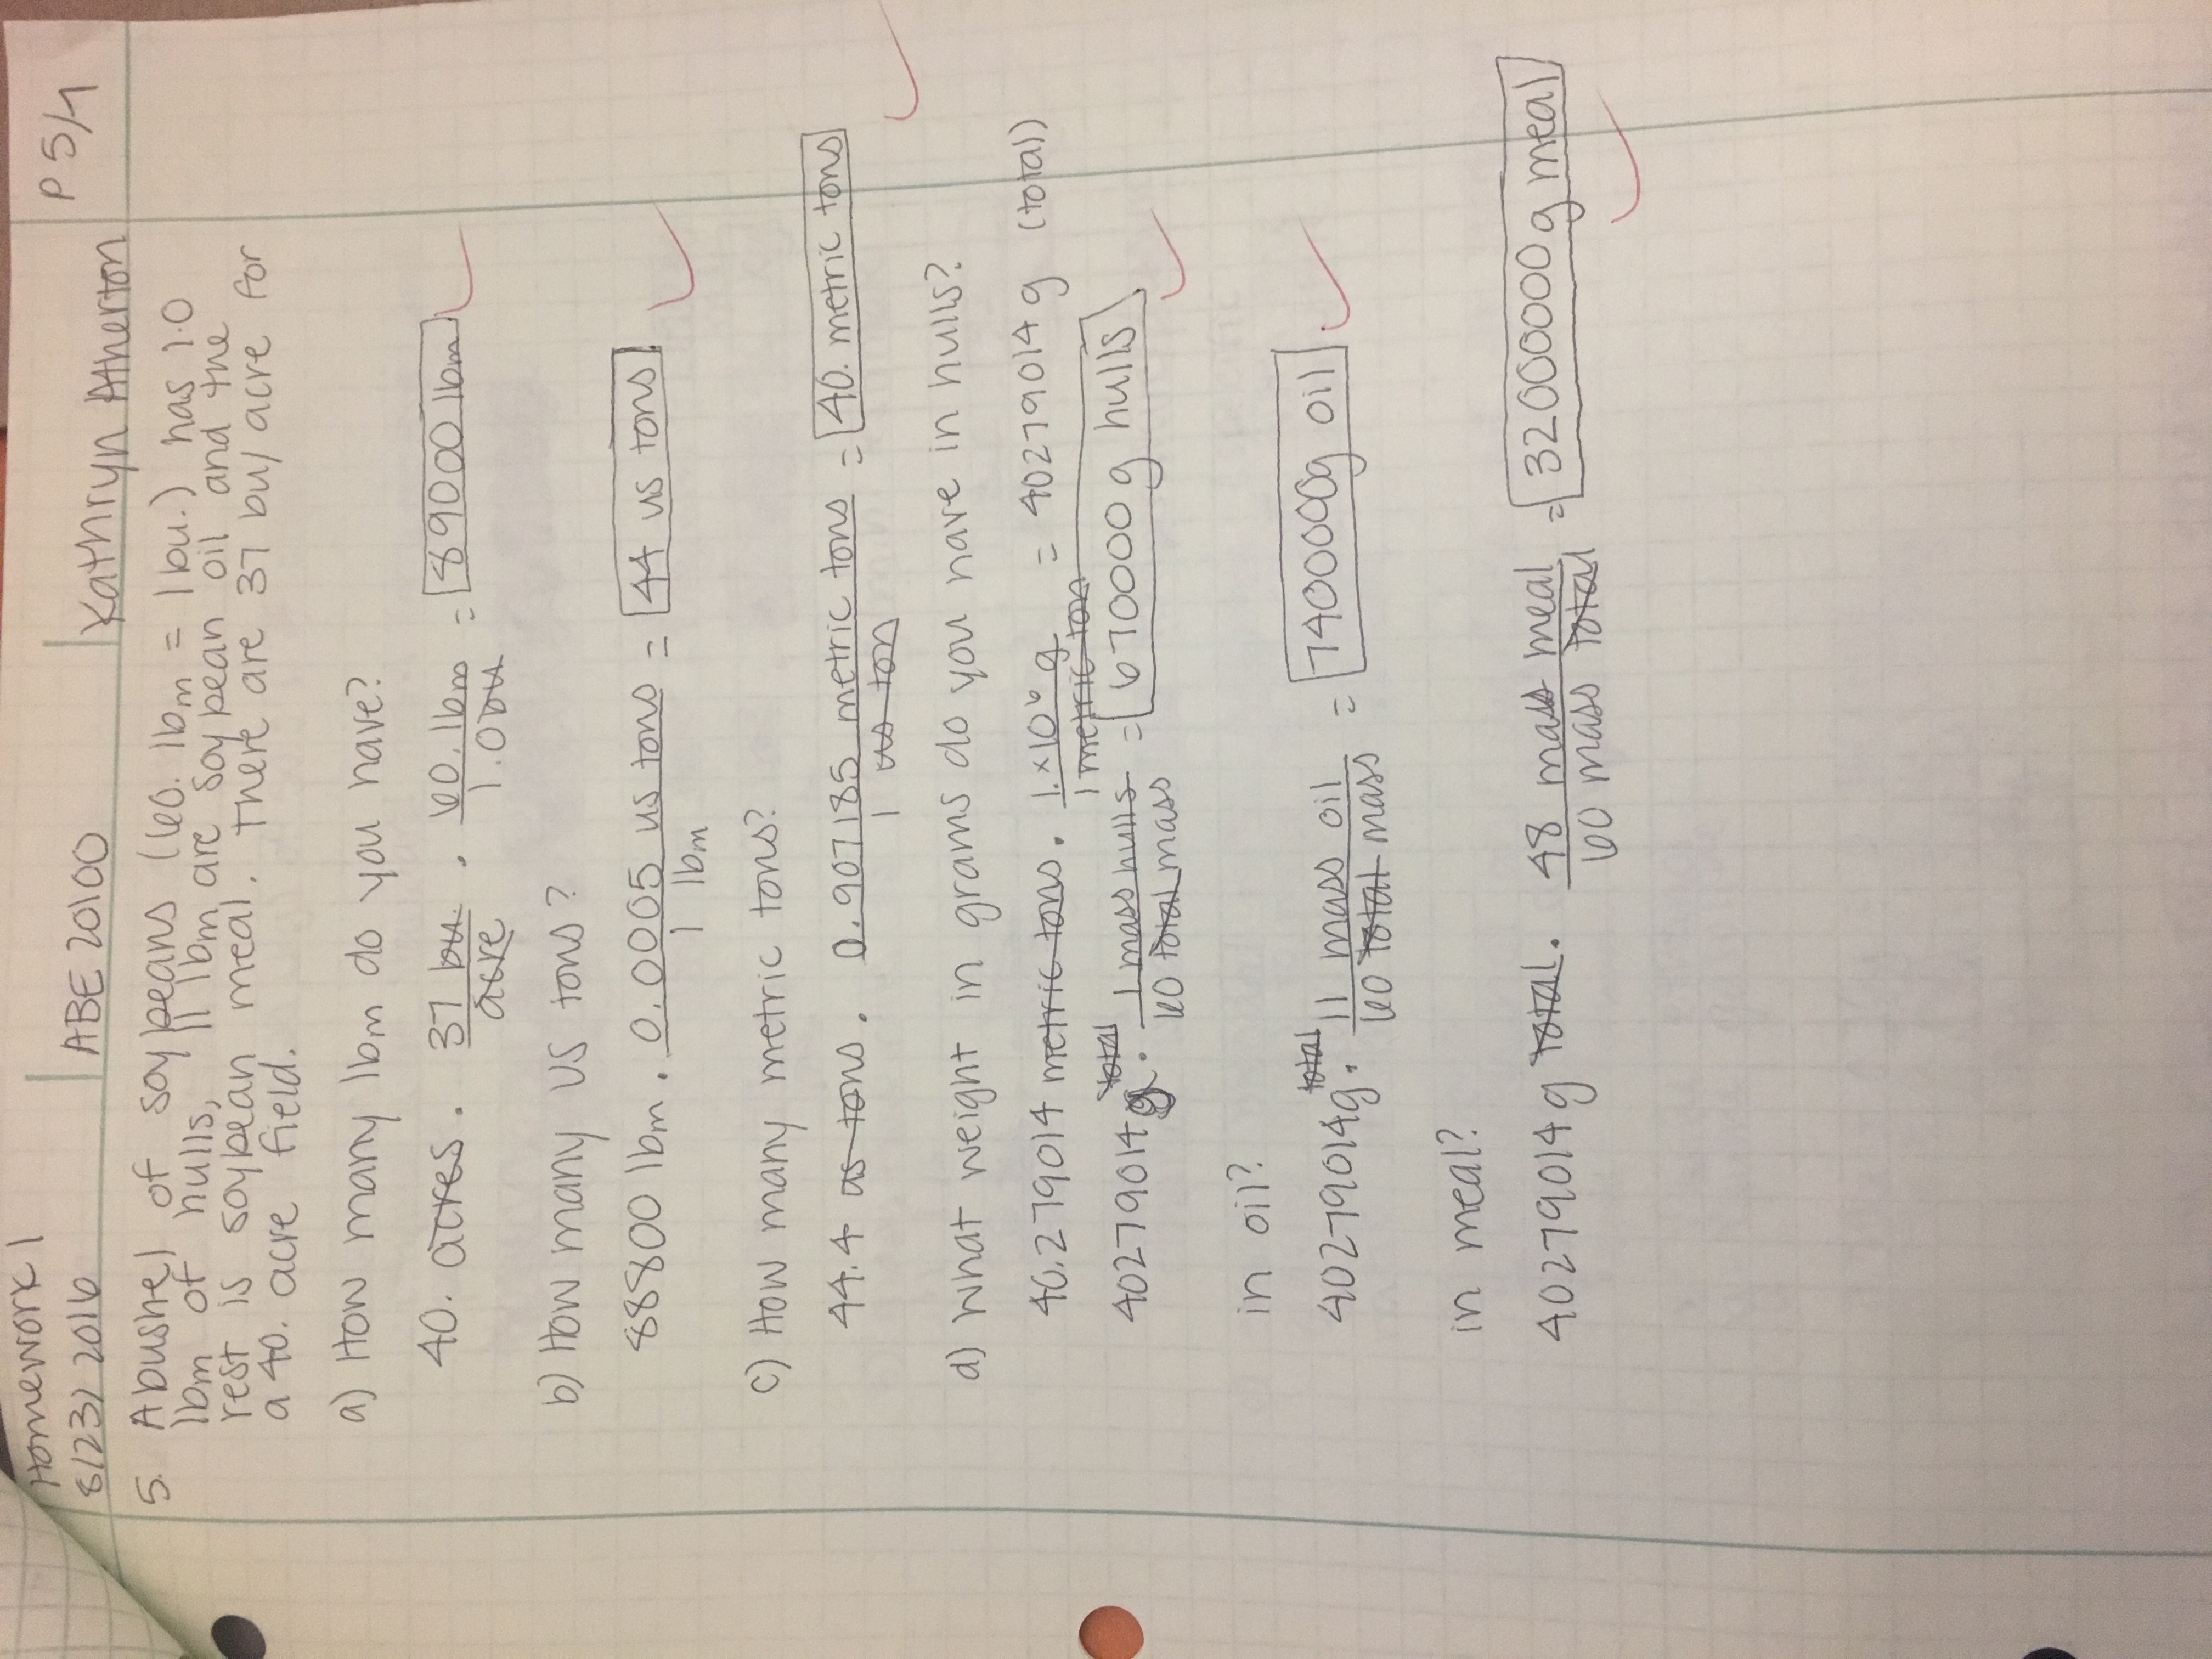 Homework 1
8/23/2016
ABE 20100
Kathryn Atherton
P 5/7
5. A bushel of soybeans (60. lbm = 1 bu.) has 1.0
lbm of hulls, 11 lbm are soybean oil and the
rest is soybean meal. There are 37 bu/acre for
a 40. acre field.
a) How many lbm do you have?
40. acres . 37 bu. / acre . 60. lbm / 1.0 bu = 89000 lbm
b) How many US tons?
88800 lbm . 0.0005 us tons / 1 lbm = 44 us tons
c) How many metric tons?
44.4 us tons . 0.907185 metric tons / 1 us ton = 40. metric tons
d) What weight in grams do you have in hulls?
40.279014 metric tons . 1.×10⁶ g / 1 metric ton = 40279014 g (total)
40279014 g total . 1 mass hulls / 60 total mass = 670000 g hulls
in oil?
40279014 g total . 11 mass oil / 60 total mass = 7400000 g oil
in meal?
40279014 g total . 48 mass meal / 60 mass total = 32000000 g meal